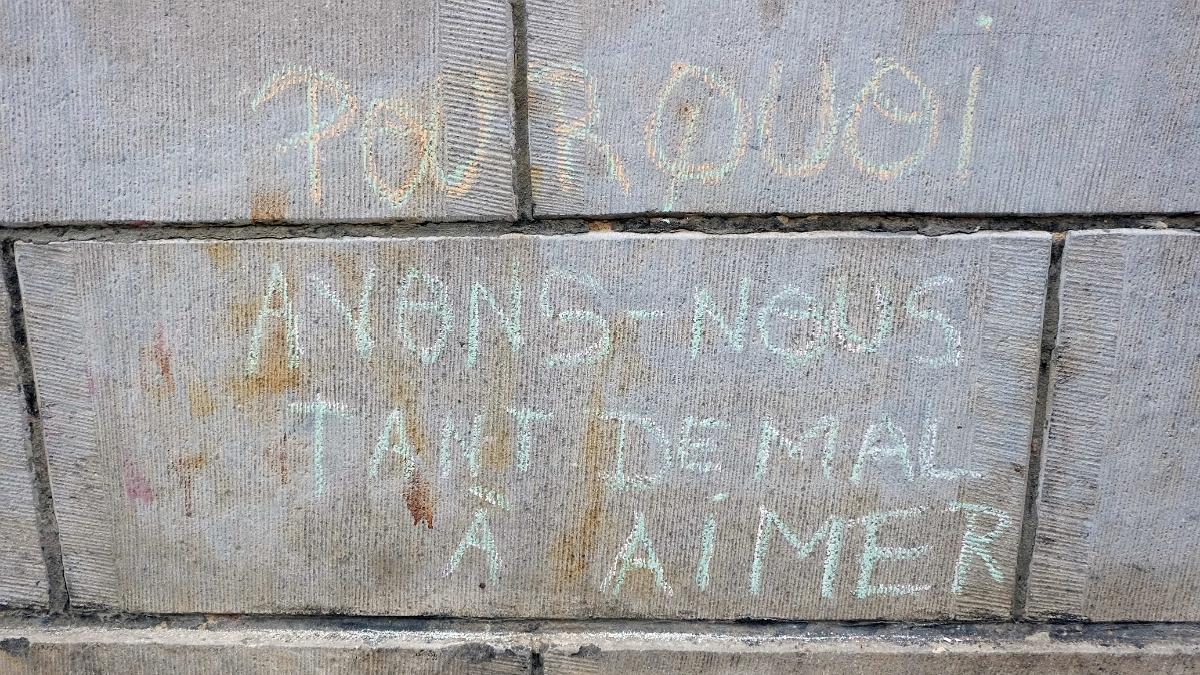 POURQUOI
AVONS-NOUS
TANT DE MAL
À AIMER